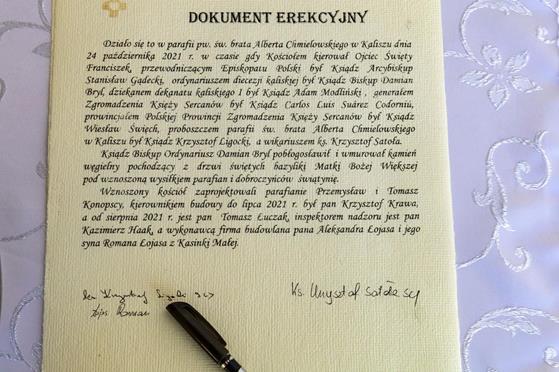 DOKUMENT EREKCYJNY
Działo się to w parafii pw. św. brata Alberta Chmielowskiego w Kaliszu dnia
24 października 2021 r. w czasie gdy Kościołem kierował Ojciec Święty
Franciszek, przewodniczącym Episkopatu Polski był Ksiądz Arcybiskup
Stanisław Gądecki, ordynariuszem diecezji kaliskiej był Ksiądz Biskup Damian
Bryl, dziekanem dekanatu kaliskiego I był Ksiądz Adam Modliński , generałem
Zgromadzenia Księży Sercanów był Ksiądz Carlos Luis Suárez Codorniú,
prowincjałem Polskiej Prowincji Zgromadzenia Księży Sercanów był Ksiądz
Wiesław Święch, proboszczem parafii św. brata Alberta Chmielowskiego
w Kaliszu był Ksiądz Krzysztof Ligocki, a wikariuszem ks. Krzysztof Satoła.
Ksiądz Biskup Ordynariusz Damian Bryl pobłogosławił i wmurował kamień
węgielny pochodzący z drzwi świętych bazyliki Matki Bożej Większej
pod wznoszoną wysiłkiem parafian i dobroczyńców świątynię.
Wznoszony kościół zaprojektowali parafianie Przemysław i Tomasz
Konopscy, kierownikiem budowy do lipca 2021 r. był pan Krzysztof Krawa,
a od sierpnia 2021 r. jest pan Tomasz Łuczak, inspektorem nadzoru jest pan
Kazimierz Haak, a wykonawcą firma budowlana pana Aleksandra Łojasa i jego
syna Romana Łojasa z Kasinki Małej.
Ks. Krzysztof Satoła scj